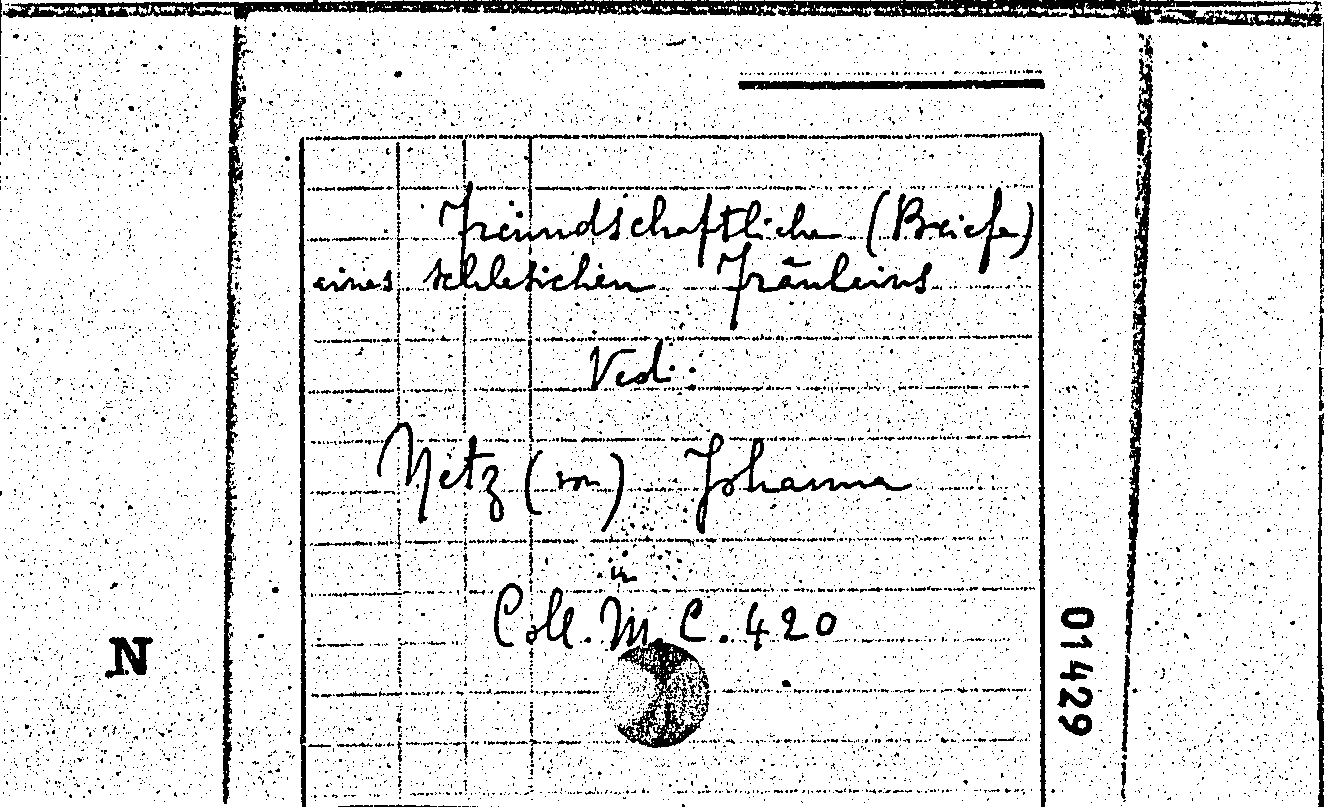 Freundschaftliche (Briefe)
eines schlesichen Fräuleins
Ved.:
Netz (von) Johanna
in
Coll. M. C. 420
N
01429